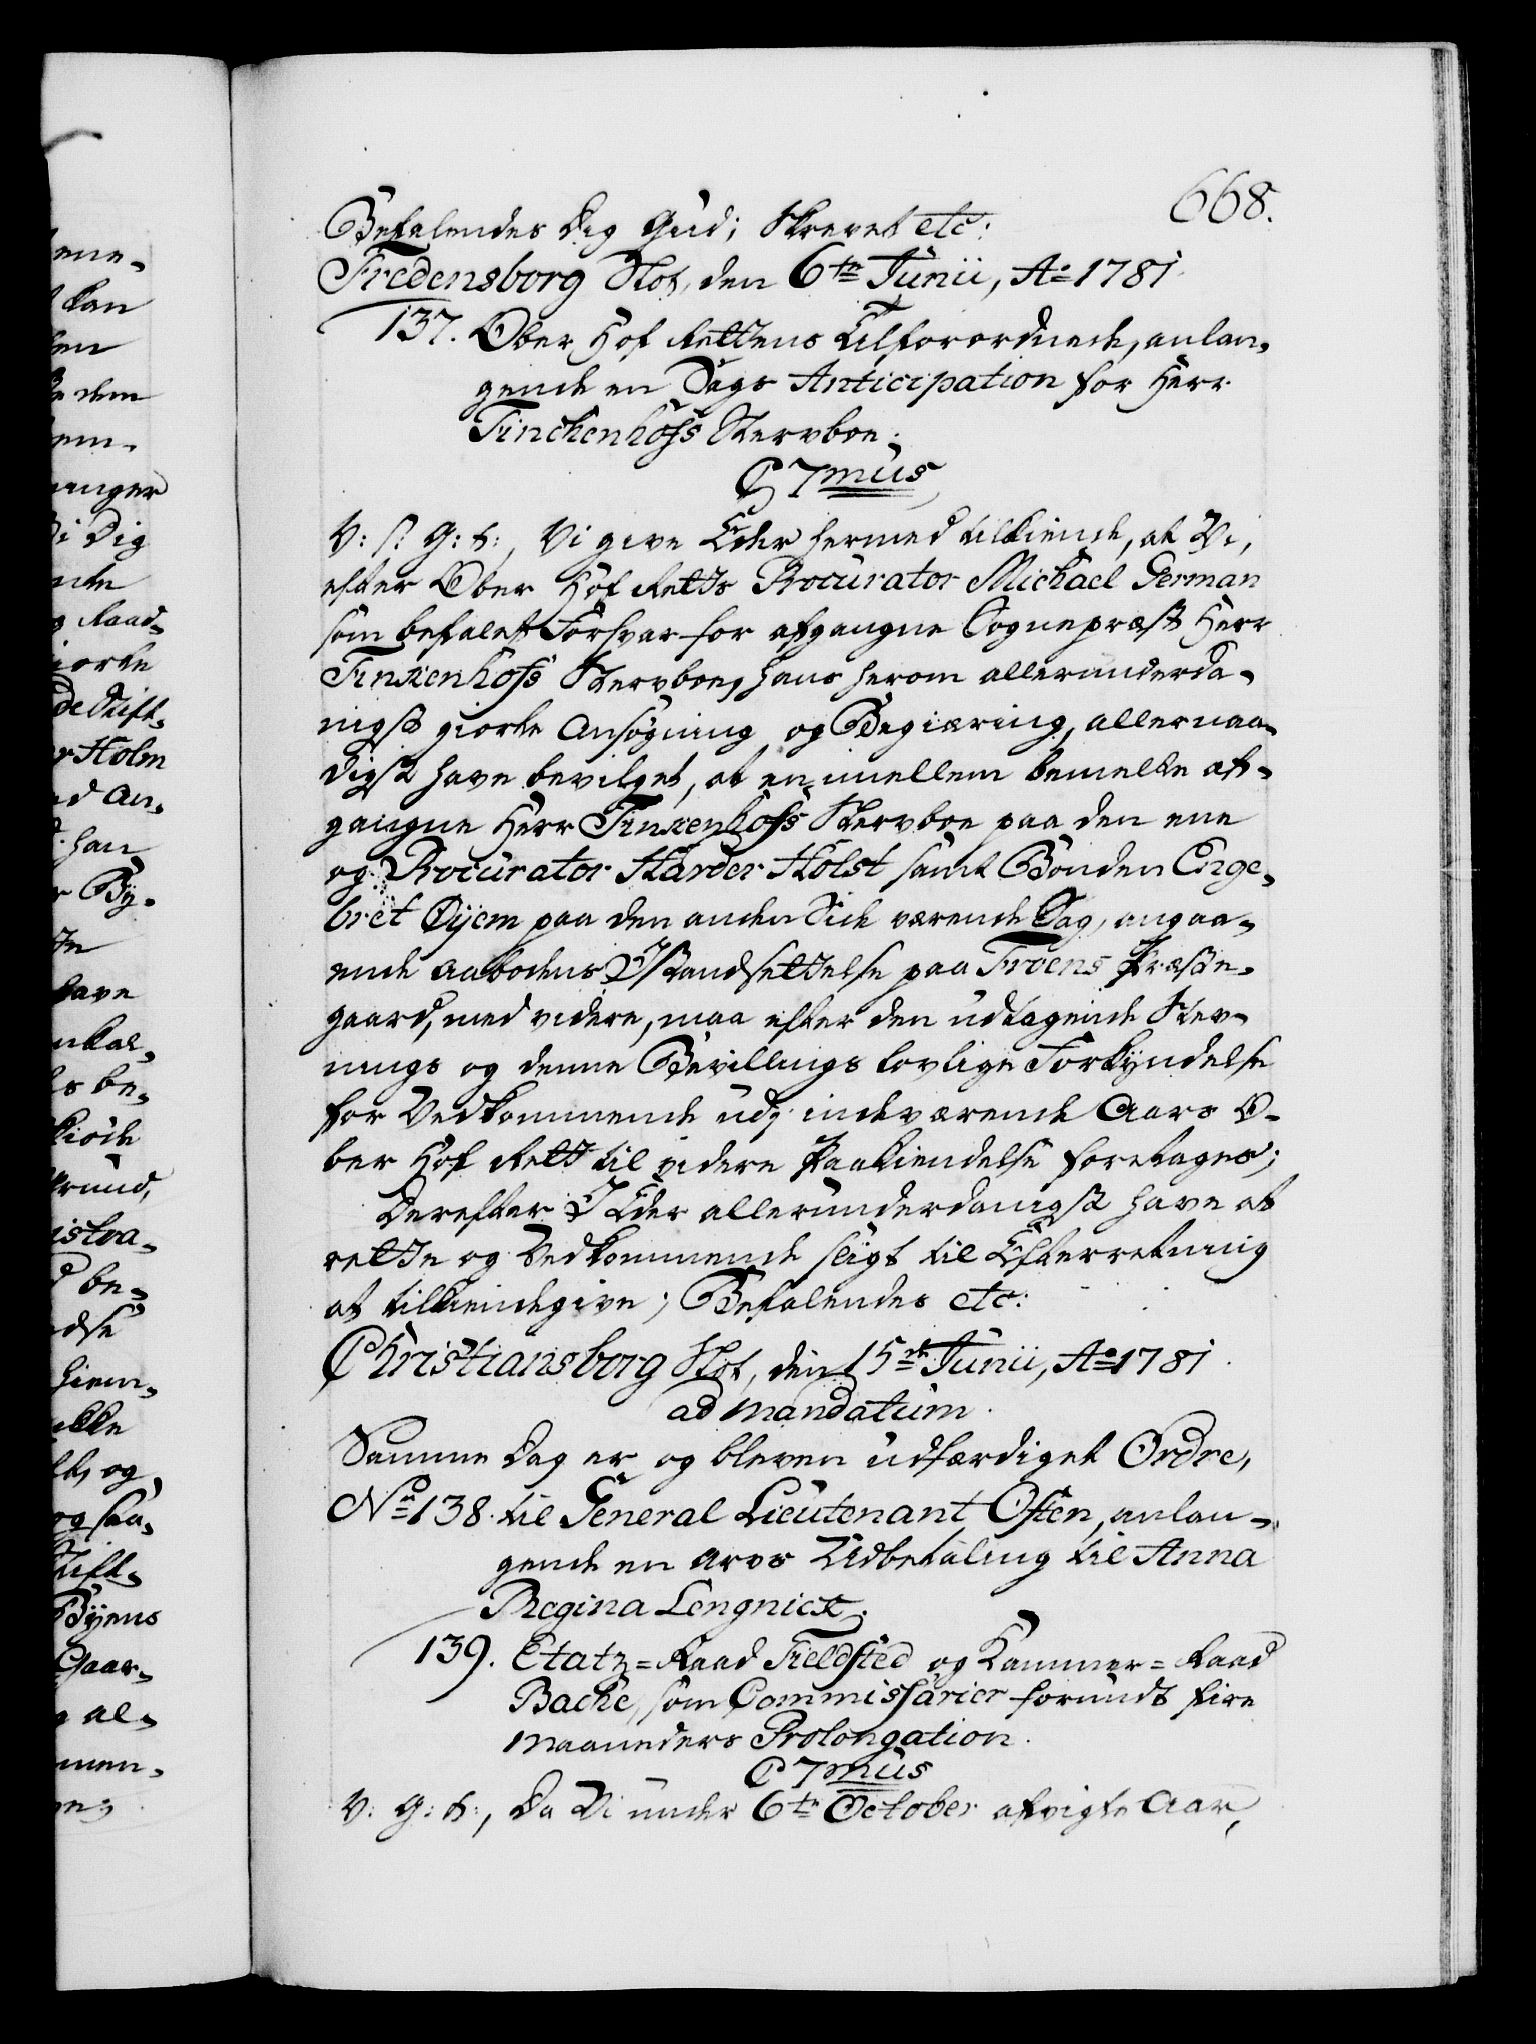 668.
Befalendes dig Gud; Skrevet etc:
Fredensborg Slot, den 6te Junii, Ao 1781.
137. Ober Hof Rettens Tilforordnede, anlan-
gende en Sags Anticipation for Herr
Finckenhofs Stervboe.
C 7mus
V: S: G: T:, Vi give Eder hermed tilkiende, at Vi,
efter Ober Hof Retts Procurator Michael German
som befalet Forsvar for afgangne Sognepræst Herr
Finkenhofs Stervboe, hans herom allerunderda-
nigst giorte Ansøgning og Begiæring, allernaa-
digst have bevilget, at en imellem bemelte af-
gangne Herr Finkenhofs Stervboe paa den ene
og Procurator Harder Holst samt Bonden Enge-
bret Øyem paa den anden Side værende Sag, angaa-
ende Aabodens Istandsettelse paa Froens Præste-
gaard, med videre, maa efter den udtagende Stev-
nings og denne Bevillings lovlige Forkyndelse
for Vedkommende udj indeværende Aars O-
ber Hof Rett til videre Paakiendelse foretages;
Derefter I Eder allerunderdanigst have at
rette og Vedkommende sligt til Efterretning
at tilkiendegive; Befalendes etc:
Christiansborg Slot, den 15de Junii, Ao 1781.
ad mandatum.
Samme Dag er og bleven udfærdiget Ordre,
No 138. til General Lieutenant Osten, anlan-
gende en Arvs Udbetaling til Anna
Regina Lengnick.
139. Etatz=Raad Fieldsted og Kammer=Raad
Bache, som Commissarier forundt fire
Maaneders Prolongation.
C 7mus
V: G: T:, Da Vi under 6te October afvigte Aar,